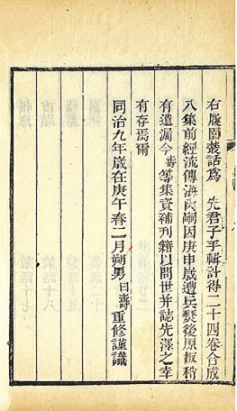 右履園叢話爲 先君子手輯計得二十四卷合成
八集前經流傳海內嗣因庚申歲遭兵燹後原板稍
有遺漏今壽等集資補刊藉以問世并誌先澤之幸
有存焉爾
同治九年歲在庚午春二月朔男曰壽重修謹識